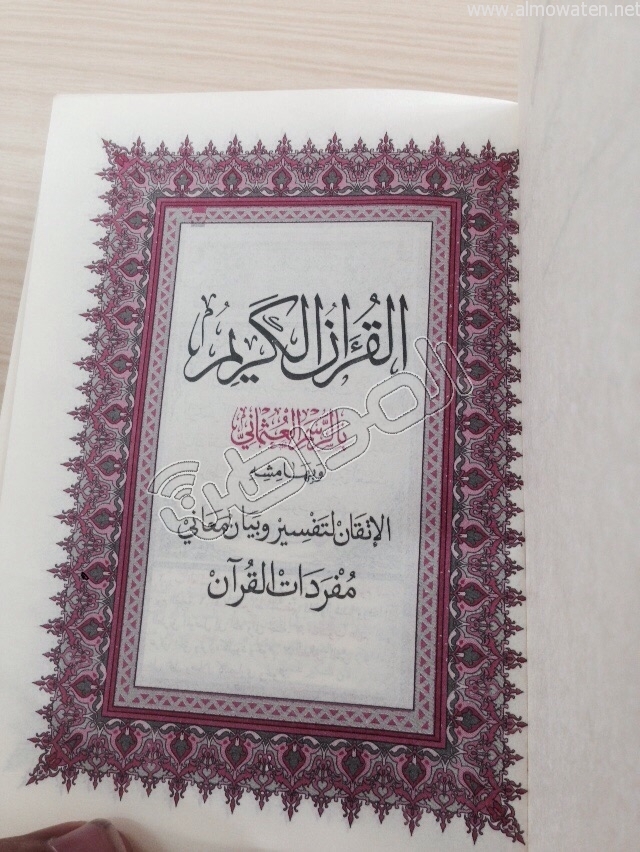 www.almowaten.net
القرآن الكريم
بالرسم العثماني
وبهامشه
الإتقان لتفسير وبيان معاني
مفردات القرآن
المواطن